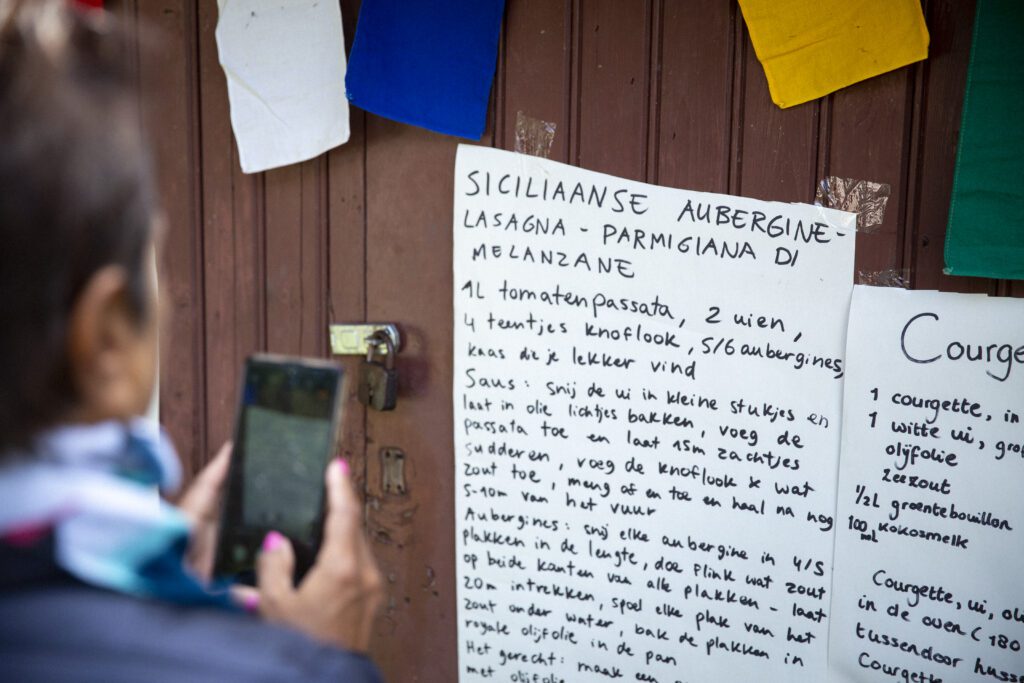 SICILIAANSE AUBERGINE-
LASAGNA - PARMIGIANA DI
MELANZANE
1L tomatenpassata, 2 uien,
4 teentjes knoflook, 5/6 aubergines,
kaas die je lekker vind
Saus: snij de ui in kleine stukjes en
laat in olie lichtjes bakken, voeg de
passata toe en laat 15m zachtjes
sudderen, voeg de knoflook & wat
zout toe, meng af en toe en haal na nog
5-10m van het vuur
Aubergines: snij elke aubergine in 4/5
plakken in de lengte, doe flink wat zout
op beide kanten van alle plakken - laat
20m intrekken, spoel elke plak van het
zout onder water, bak de plakken in
royale olijfolie in de pan
Het gerecht: maak een
met olijfolie
Courget
1 courgette, in
1 witte ui, gro
olijfolie
zeezout
1/2L groentebouillon
100ml kokosmelk
Courgette, ui, ol
in de oven (180
tussendoor husse
Courgette